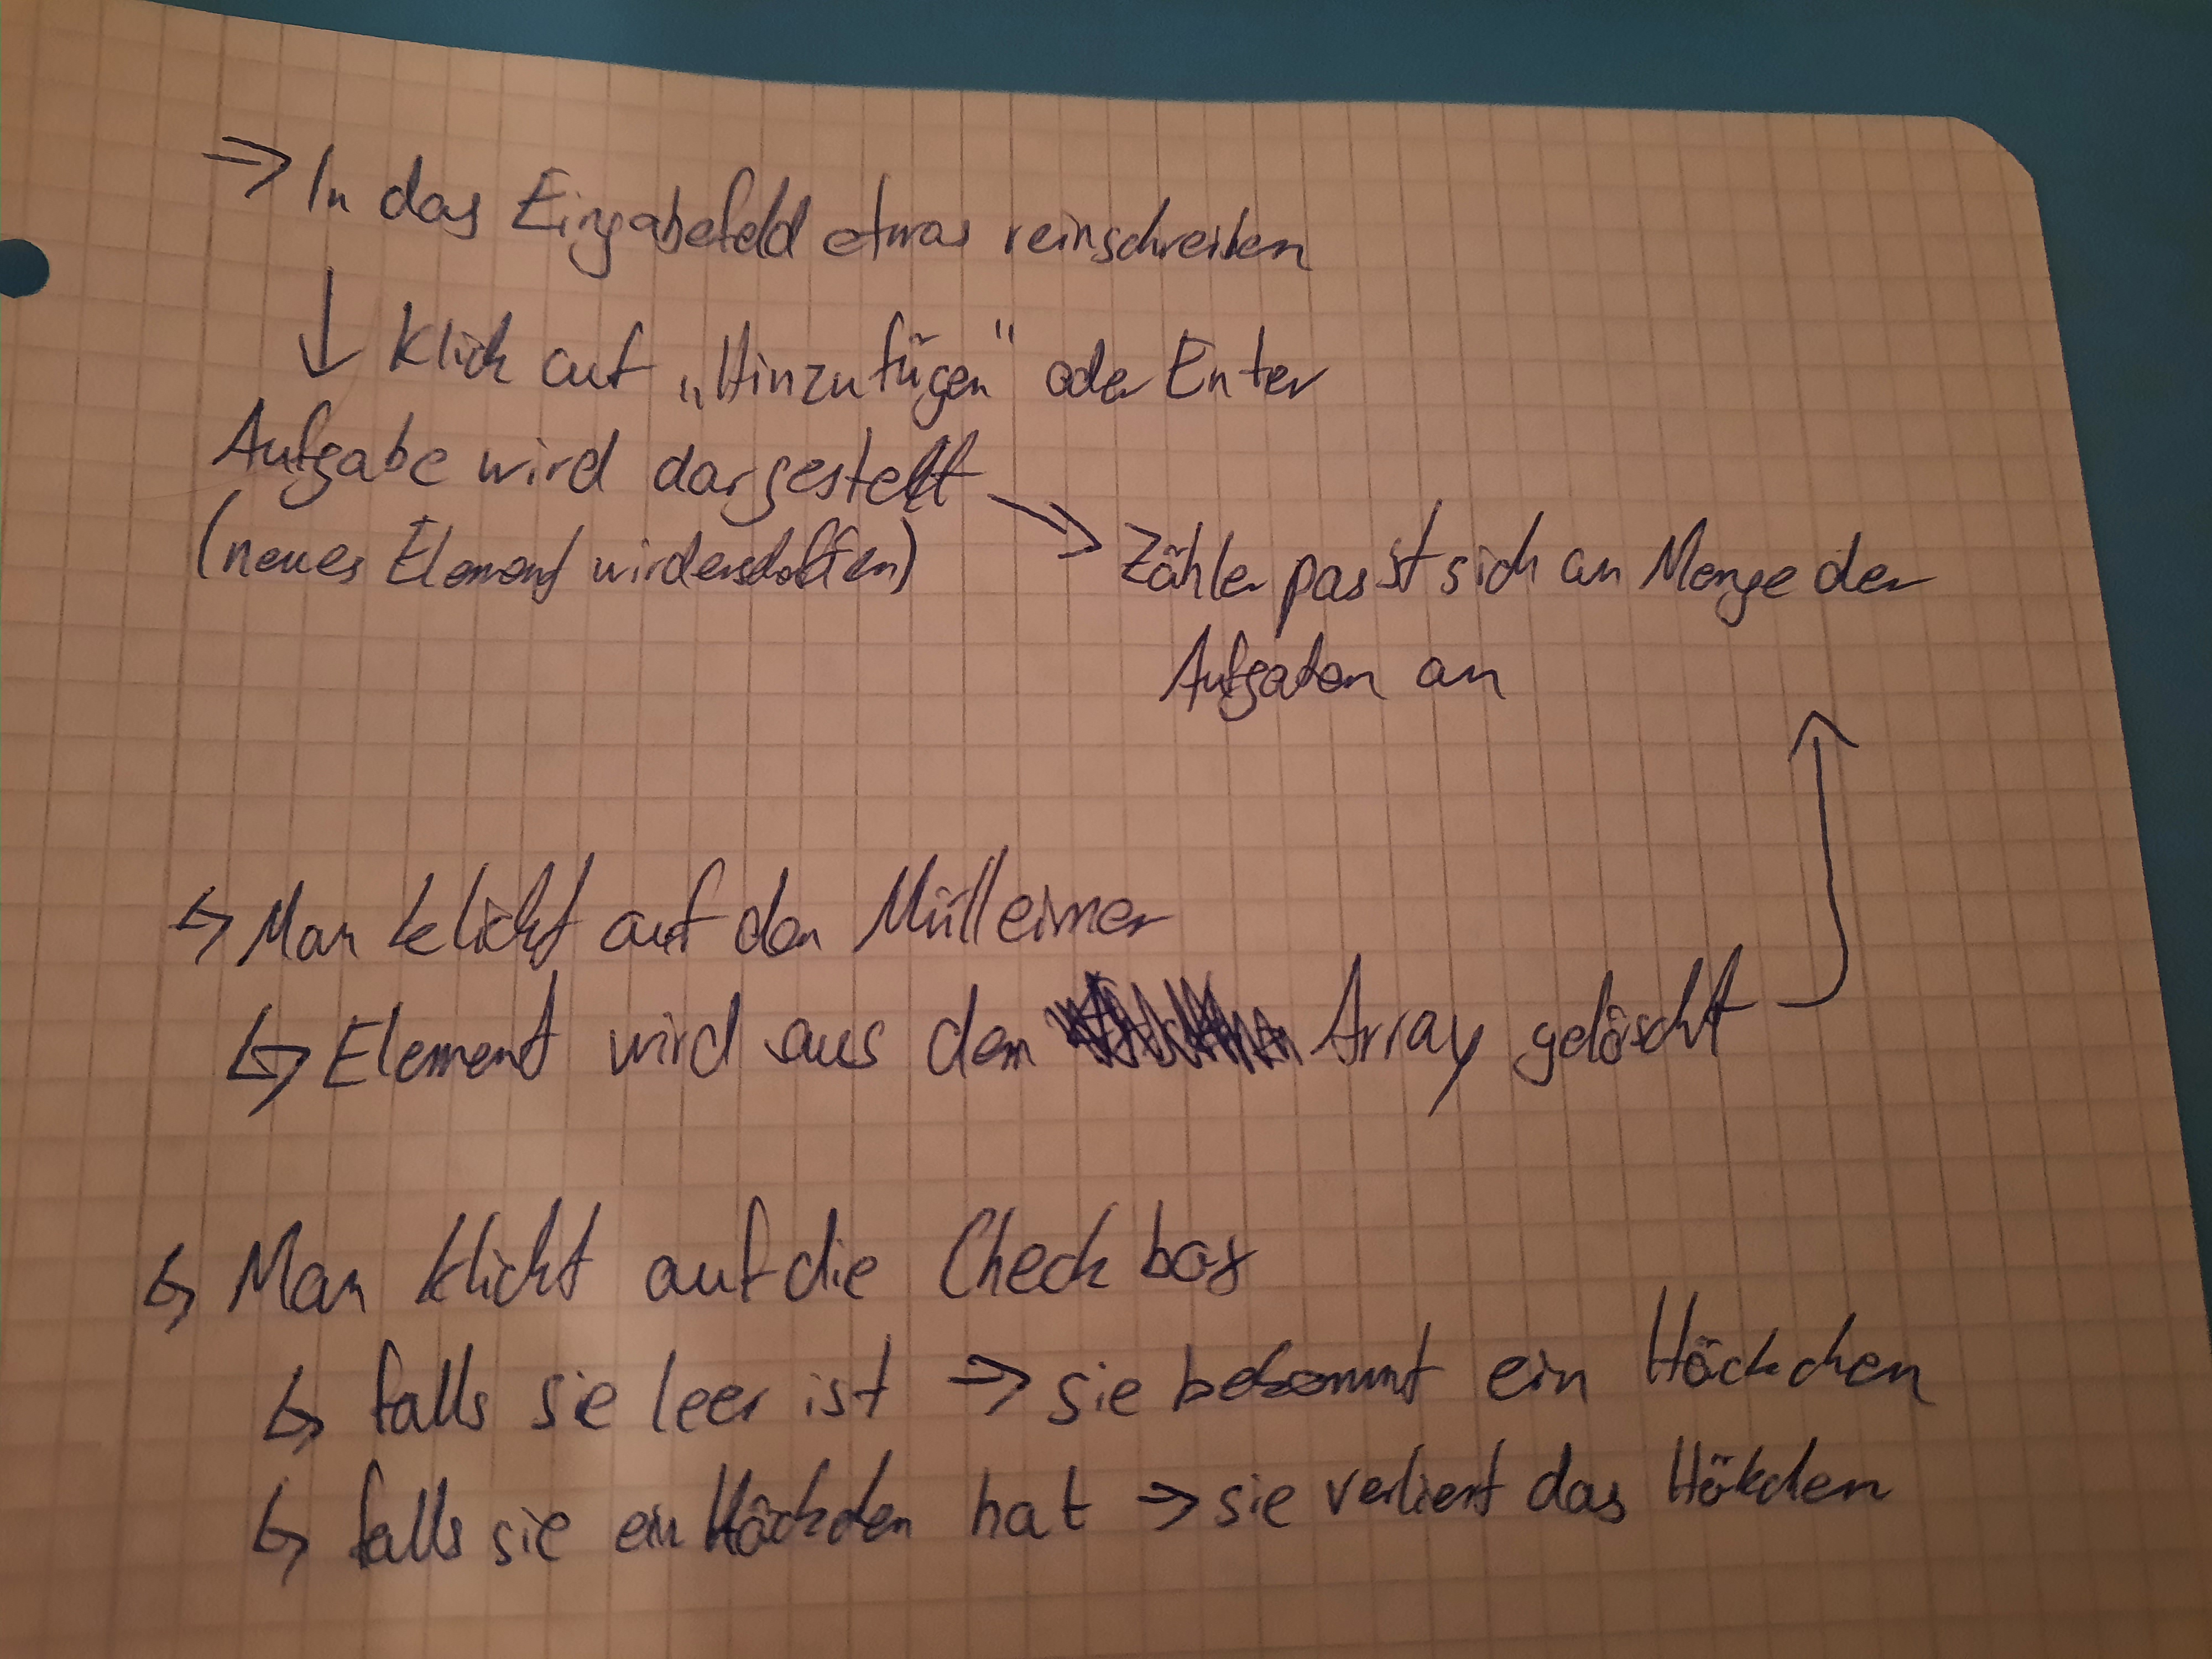 ⇒ In das Eingabefeld etwas reinschreiben
↓ Klick auf „Hinzufügen“ oder Enter
Aufgabe wird dargestellt
(neues Element wird erschaffen)
→ Zähler passt sich an Menge der
Aufgaben an
↳ Man klickt auf den Mülleimer
↳ Element wird aus dem Array gelöscht
↳ Man klickt auf die Checkbox
↳ falls sie leer ist ⇒ sie bekommt ein Häckchen
↳ falls sie ein Häckchen hat ⇒ sie verliert das Häkchen